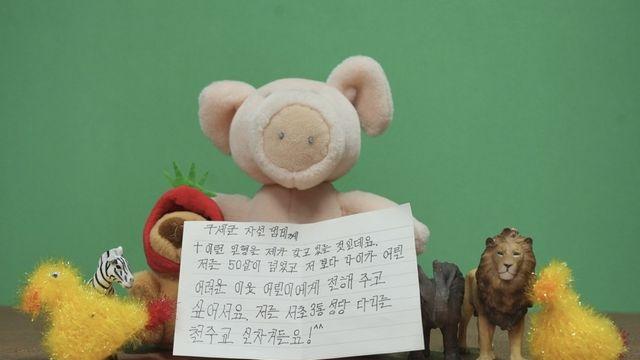 구세군 자선 냄비께
† 이런 인형을 제가 갖고 있는 것인데요.
저는 50살이 넘었고 저 보다 나이가 어린
어려운 이웃 어린이에게 전해 주고
싶어서요. 저는 서초3동 성당 다니는
천주교 신자거든요!^^